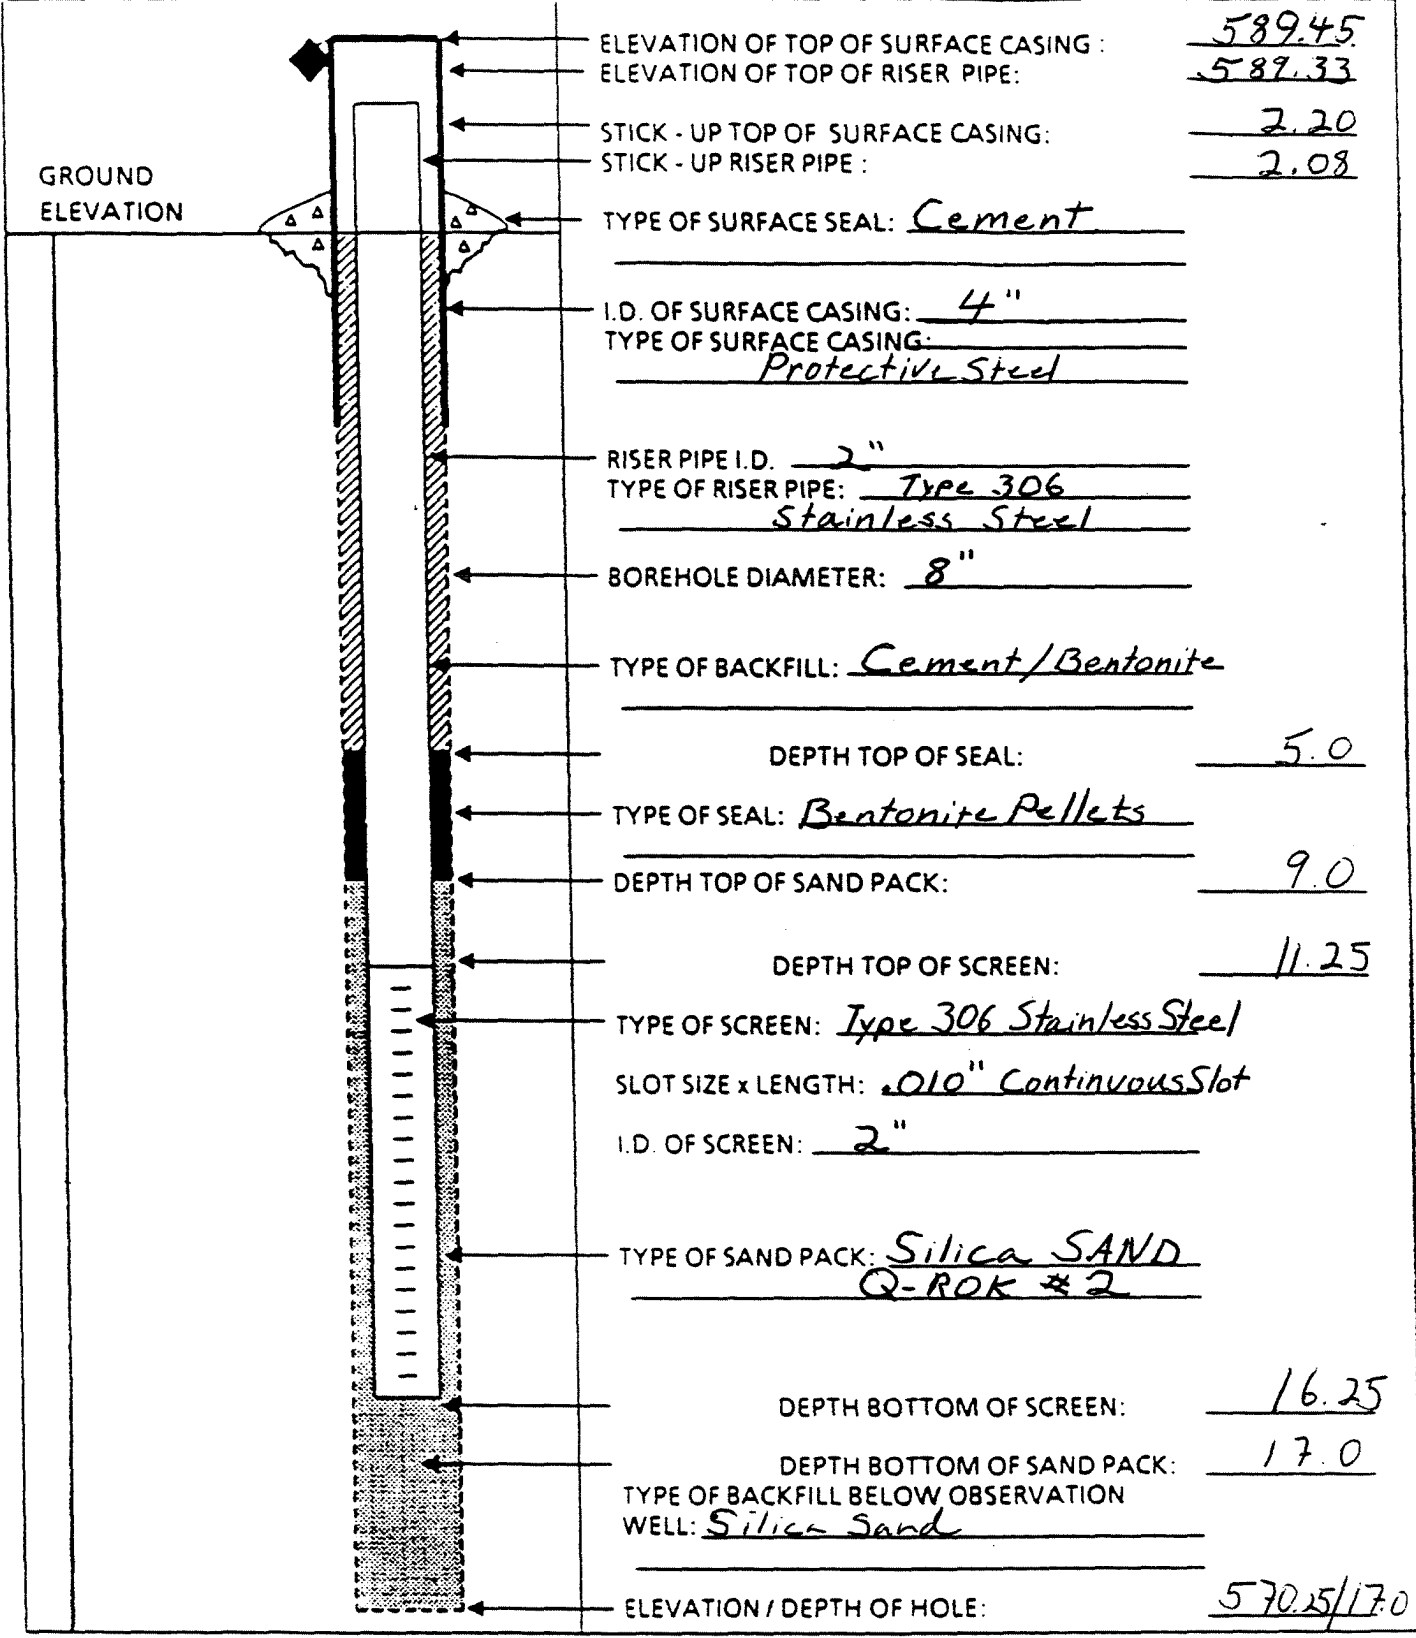 ELEVATION OF TOP OF SURFACE CASING : 589.45
ELEVATION OF TOP OF RISER PIPE: 589.33
STICK - UP TOP OF SURFACE CASING: 2.20
STICK - UP RISER PIPE : 2.08
GROUND
ELEVATION
TYPE OF SURFACE SEAL: Cement
I.D. OF SURFACE CASING: 4"
TYPE OF SURFACE CASING:
Protective Steel
RISER PIPE I.D. 2"
TYPE OF RISER PIPE: Type 306
Stainless Steel
BOREHOLE DIAMETER: 8"
TYPE OF BACKFILL: Cement/Bentonite
DEPTH TOP OF SEAL: 5.0
TYPE OF SEAL: Bentonite Pellets
DEPTH TOP OF SAND PACK: 9.0
DEPTH TOP OF SCREEN: 11.25
TYPE OF SCREEN: Type 306 Stainless Steel
SLOT SIZE x LENGTH: .010" Continuous Slot
I.D. OF SCREEN: 2"
TYPE OF SAND PACK: Silica SAND
Q-ROK #2
DEPTH BOTTOM OF SCREEN: 16.25
DEPTH BOTTOM OF SAND PACK: 17.0
TYPE OF BACKFILL BELOW OBSERVATION
WELL: Silica Sand
ELEVATION / DEPTH OF HOLE: 570.25/17.0